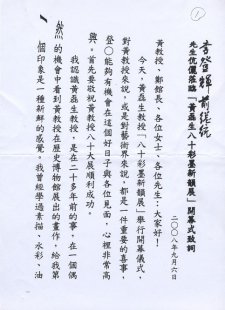 1
黃磊生八十彩墨新韻展」開幕式致詞
二〇〇八年九月六日
黃教授、鄭館長、各位女士、各位先生:大家好!
今天,黃磊生教授「八十彩墨新韻展」舉行開幕儀式,
對黃教授來說,或是對藝術界來說,都是一件重要的喜事,
登〇能夠有機會在這個好日子與各位見面,心裡非常高
興。首先要敬祝黃教授八十大展順利成功。
我認識黃磊生教授,是在二十多年前的事,在一個偶
然的機會中看到黃教授在歷史博物館展出的畫作,給我第
個印象是一種新鮮的感覺。我曾經學過素描、水彩、油